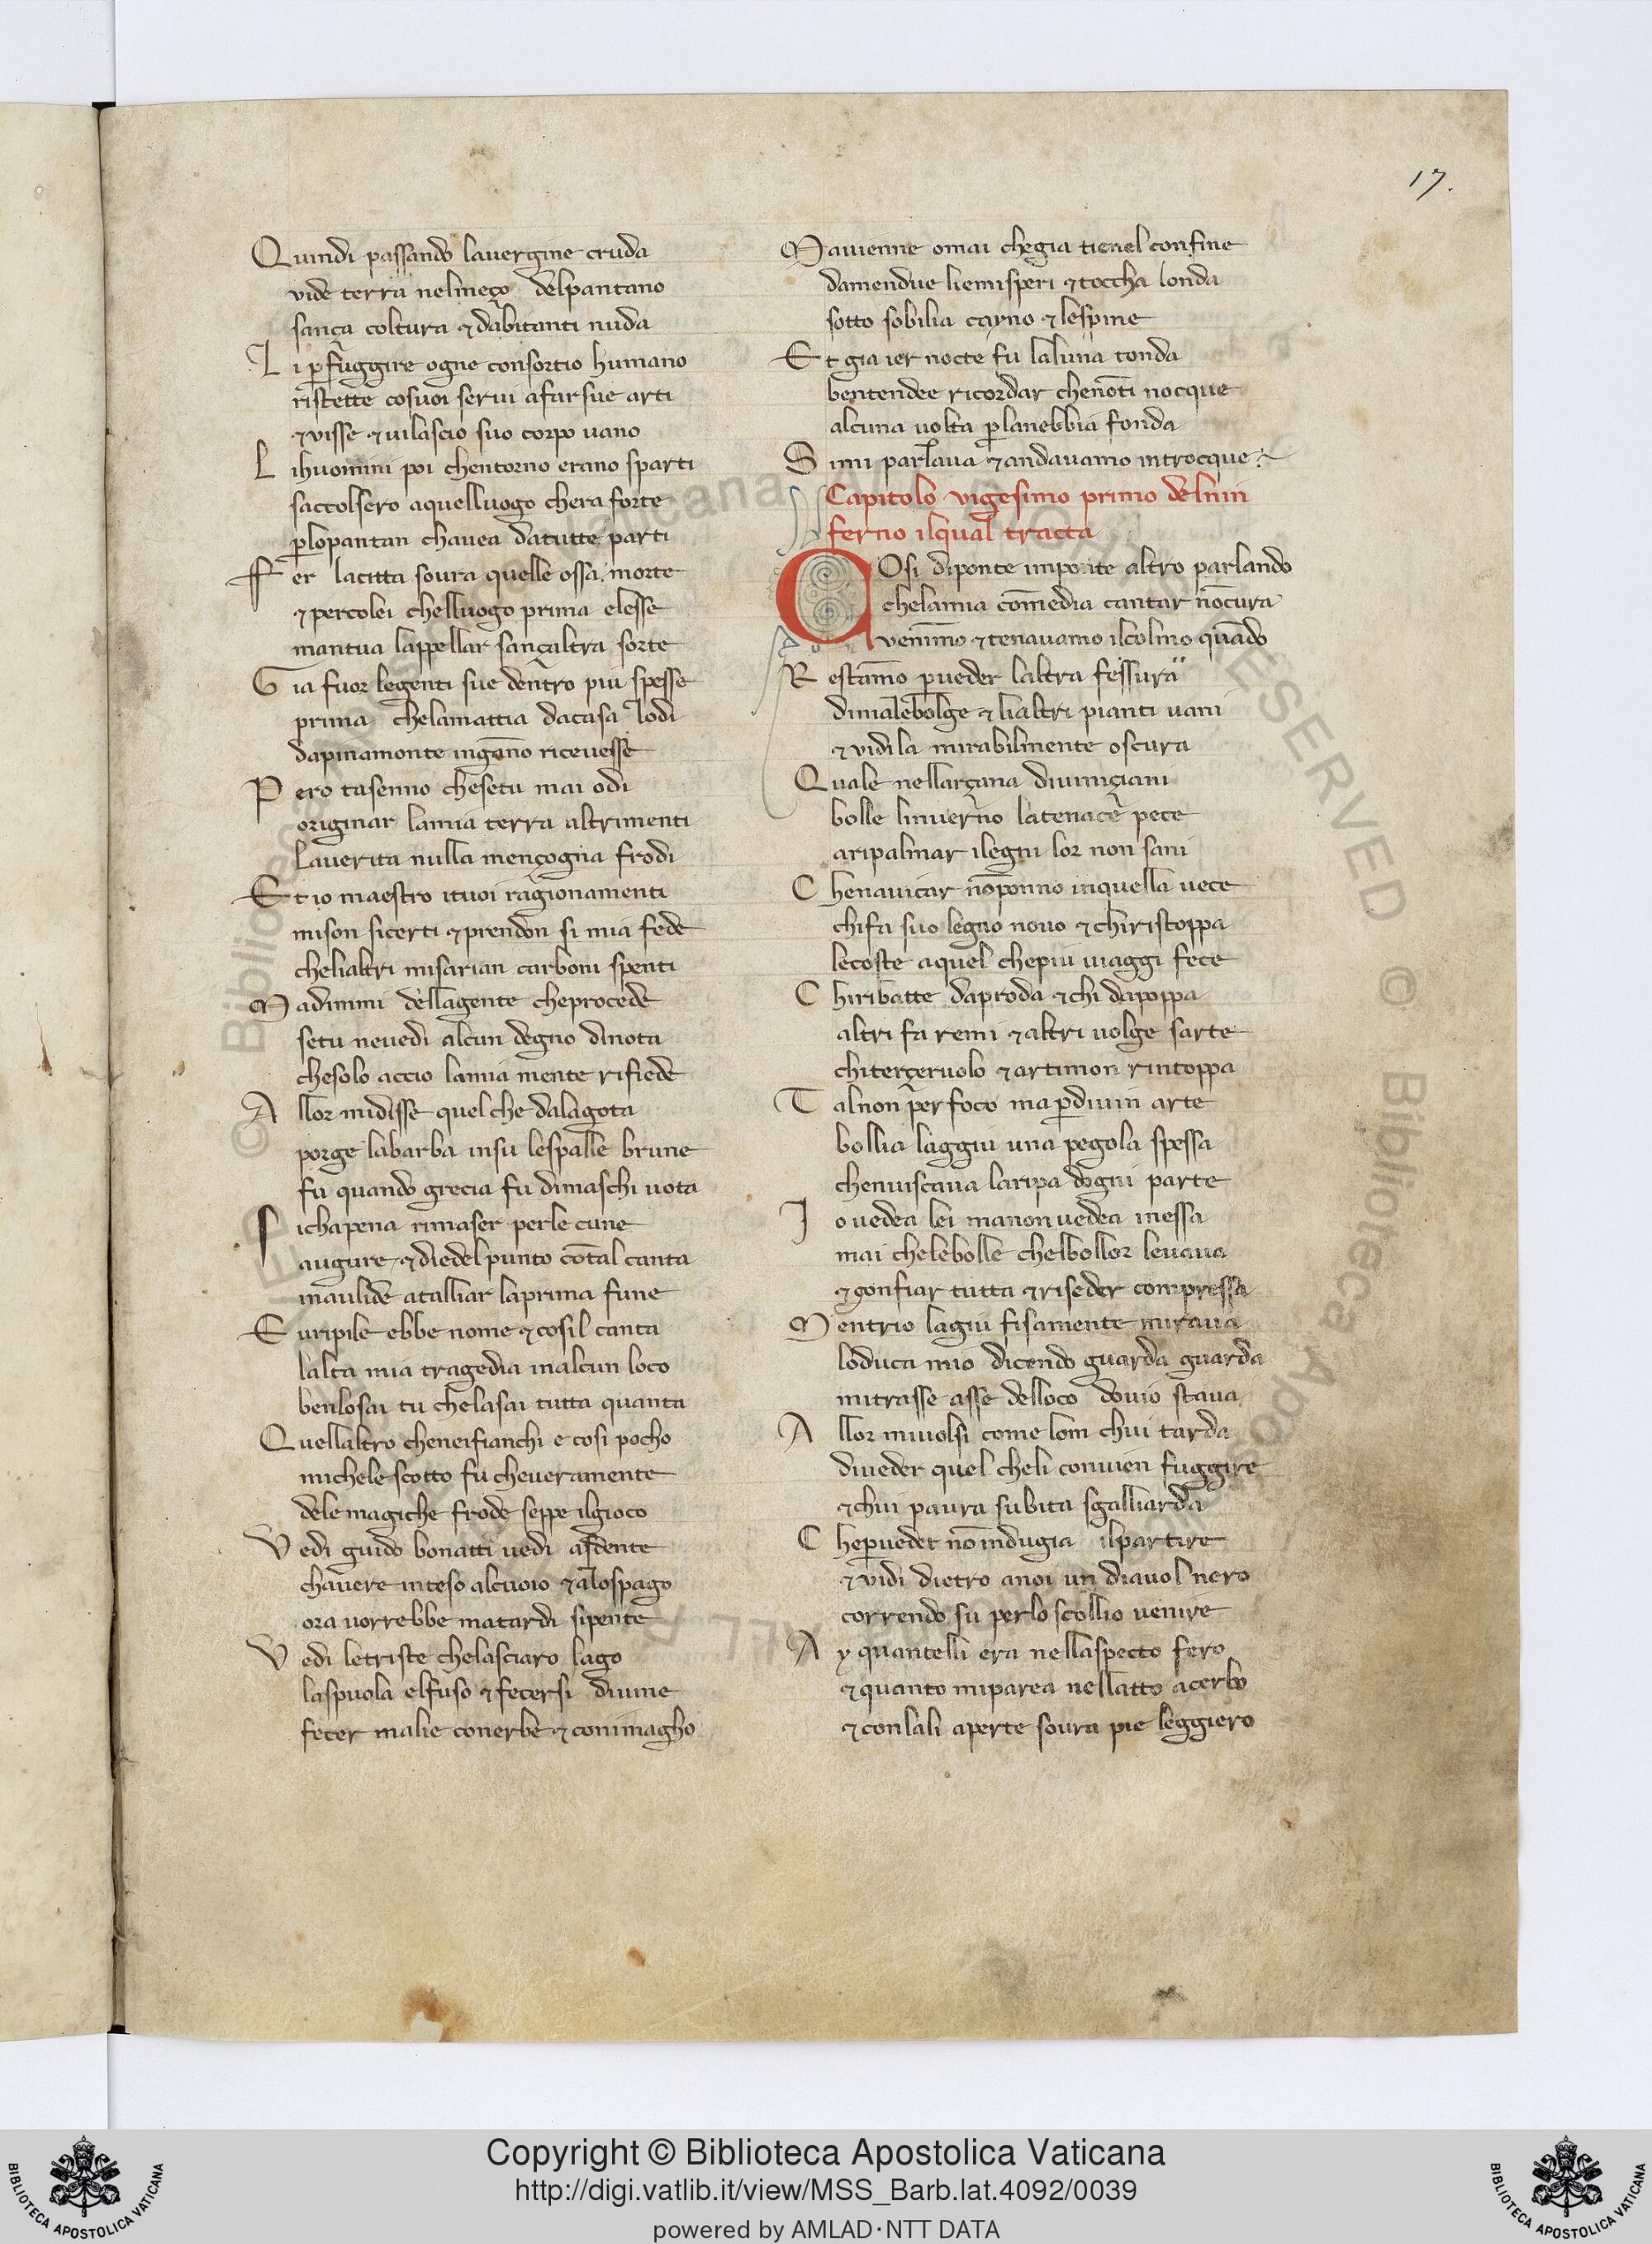 17.
Quindi passando lauergine cruda
vide terra nelmeço delpantano
sança coltura ⁊ dabitanti nuda
Li ꝑ fuggire ogne consortio humano
ristette cosuoi serui afarsue arti
⁊ visse ⁊ uilascio suo corpo uano
Lihuomini poi chentorno erano sparti
saccolsero aquelluogo chera forte
ꝑlopantan chauea datutte parti
Ffer lacitta soura quelle ossa morte
⁊ percolei chelluogo prima elesse
mantua lappellar sançaltra sorte
Gia fuor legenti sue dentro piu spesse
prima chelamattia dacasa lodi
dapinamonte inganno riceuesse
Pero tasenno chesetu mai odi
originar lamia terra altrimenti
lauerita nulla mençogna frodi
Et io maestro ituoi ragionamenti
mison sicerti ⁊ prendon si mia fede
cheliatri misarian carboni spenti
Madimmi dellagente cheprocede
setu neuedi alcun degno dinota
chesolo accio lamia mente rifiede
Allor midisse quel che dalagota
porge labarba insu lespalle brune
fu quando grecia fu dimaschi uota
Sichapena rimaser perle cune
augure ⁊ diedel punto cōtal canta
inaulide atalliar laprima fune
Euripile ebbe nome ⁊ cosil canta
lalta mia tragedia inalcun loco
benlosai tu chelasai tutta quanta
Quellaltro cheneifianchi e cosi pocho
michele scotto fu cheueramente
dele magiche frode seppe ilgioco
Vedi guido bonatti uedi asdente
chauere inteso alcuoio ⁊ alospago
ora uorrebbe matardi sipente
Vedi letriste chelasciaro lago
laspuola elfuso ⁊ fecersi diuine
fecer malie conerbe ⁊ conimagho
Mauienne omai chegia tienel confine
damendue liemisperi ⁊ toccha londa
sotto sobilia cayno ⁊ lespine
Et gia ier nocte fu laluna tonda
bentendee ricordar chenōti nocque
alcuna uolta ꝑlanebbia fonda
Simi parlaua ⁊ andauamo introcque
Capitolo vigesimo primo delnin
ferno ilqual tracta
COsi diponte imponte altro parlando
chelamia cōmedia cantar nōcura
venimo ⁊ tenauamo ilcolmo quādo
Restamo ꝑueder laltra fessura
dimalebolge ⁊ lialtri pianti uani
⁊ vidila mirabilmente oscura
Quale nellarçana diuiniçiani
bolle linuerno latenace pece
aripalmar ilegni lor non sani
Chenauicar nōponno inquella uece
chifa suo legno nouo ⁊ chiristoppa
lecoste aquel chepiu uiaggi fece
Chiribatte daproda ⁊ chi dapoppa
altri fa remi ⁊ altri uolge sarte
chiterçeruolo ⁊ artimon rintoppa
Talnon per foco ma ꝑdiuin arte
bollia laggiu una pegola spessa
chenuiscaua laripa dogni parte
Io uedea lei manonuedea inessa
mai chelebolle chelbollor leuaua
⁊ gonfiar tutta ⁊ riseder compressa
Mentrio lagiu fisamente miraua
loduca mio dicendo guarda guarda
mitrasse asse delloco douio staua
Allor miuolsi come lom chui tarda
diueder quel cheli conuien fuggire
⁊ chui paura subita sgalliarda
Cheꝑueder nō indugia ilpartire
⁊ vidi dietro anoi un diauol nero
correndo su perlo scollio uenire
Ay quantelli era nellaspecto fero
⁊ quanto miparea nellatto acerbo
⁊ conlali aperte soura pie leggiero
Copyright © Biblioteca Apostolica Vaticana
http://digi.vatlib.it/view/MSS_Barb.lat.4092/0039
powered by AMLAD·NTT DATA
BIBLIOTECA APOSTOLICA VATICANA
BIBLIOTECA APOSTOLICA VATICANA